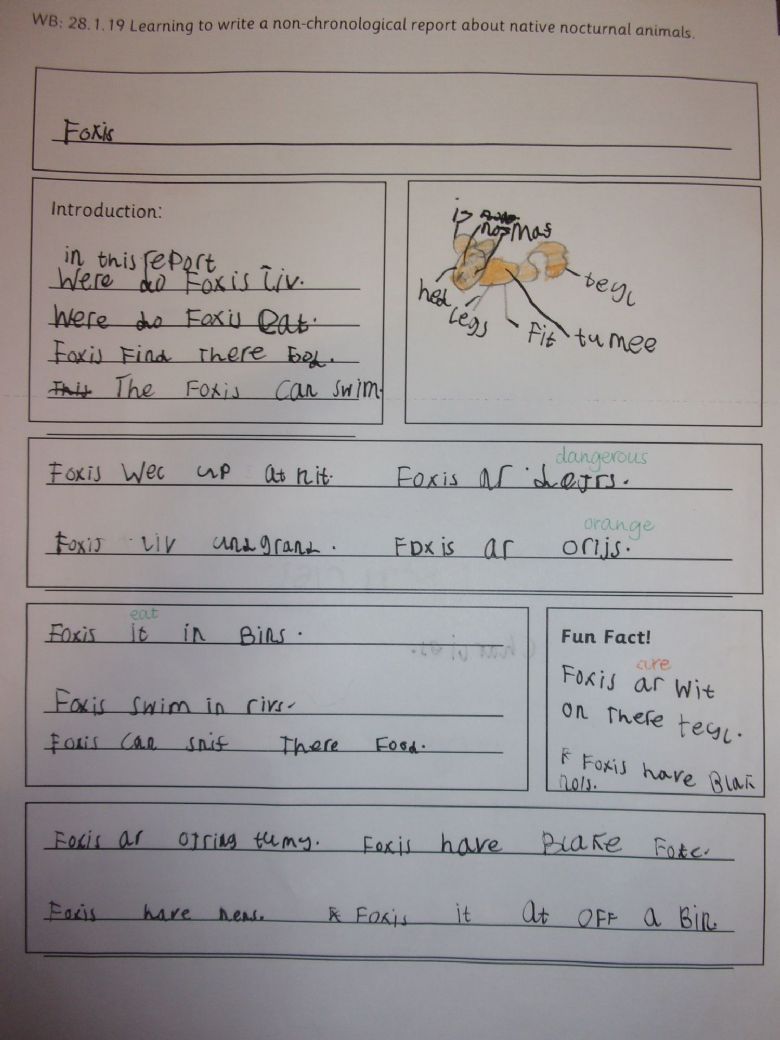 WB: 28.1.19 Learning to write a non-chronological report about native nocturnal animals.
Foxis
Introduction:
in this report
Were do Foxis liv.
Were do Foxis eat.
Foxis Find There
The Foxis can swim.
mas
hed
legs
Fit
tumee
teyl
Foxis Wec up at nit.
dangerous
Foxis ar
Foxis liv undgrand.
orange
Foxis ar orijs.
eat
Foxis it in Bins.
Foxis swim in rivs.
Foxis can snif There Food.
Fun Fact!
are
Foxis ar wit
on There teyl.
Foxis have Blak
Foxis ar tumy. Foxis have Blake
Foxis have
Foxis it at OFF a Bin